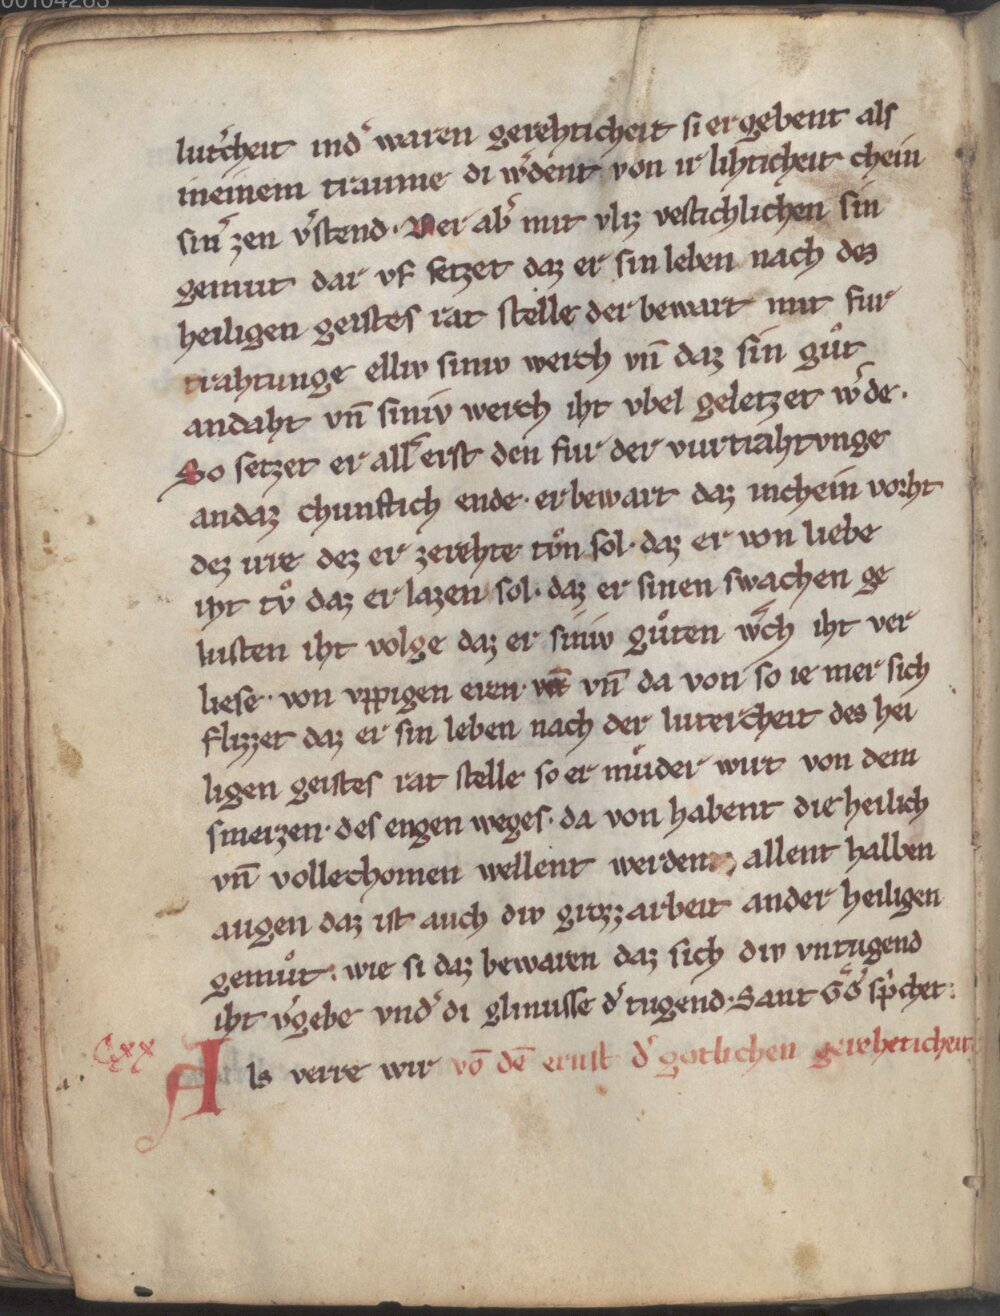 00104263
lut̓cheit ind̓ waren gerehticheit si ergebent als
ineinem traume di w̓dent von ir lihticheit chein
sin̓ zen v̓stend. Der ab̓ mit vliz vestichlichen sin
gemut dar vf setzet daz er sin leben nach des
heiligen geistes rat stelle der bewart mit fur
trahtunge elliv siniv werch vn̄ daz sin guͦt
andaht vn̄ siniv werch iht vbel geletzet w̓de.
So setzet er all̓ erst den fur der vurtrahtvnge
andaz chunftich ende. er bewart daz inchein vorht
dez irre dez er zerehte tuͦn sol. daz er von liebe
iht tvͦ daz er lazen sol. daz er sinen swachen ge
lusten iht volge daz er siniv guͦten w̓ch iht ver
liese. von vppigen eren. vn̄ da von so ie mer sich
flizzet daz er sin leben nach der lutercheit des hei
ligen geistes rat stelle so er muͤder wirt von dem
smerzen. des engen weges. da von habent die heilich
vn̄ vollechomen wellent werden allent halben
augen daz ist auch div grozz arbeit ander heiligen
gemuͦt. wie si daz bewaren daz sich div vntugend
iht v̓gebe vnd̓ di glinusse d̓ tugend. Sant G̓G̓ sp̓chet:
Cxx
a. Als verre wir vō dē ernst d̓ gotlichen gerehticheit